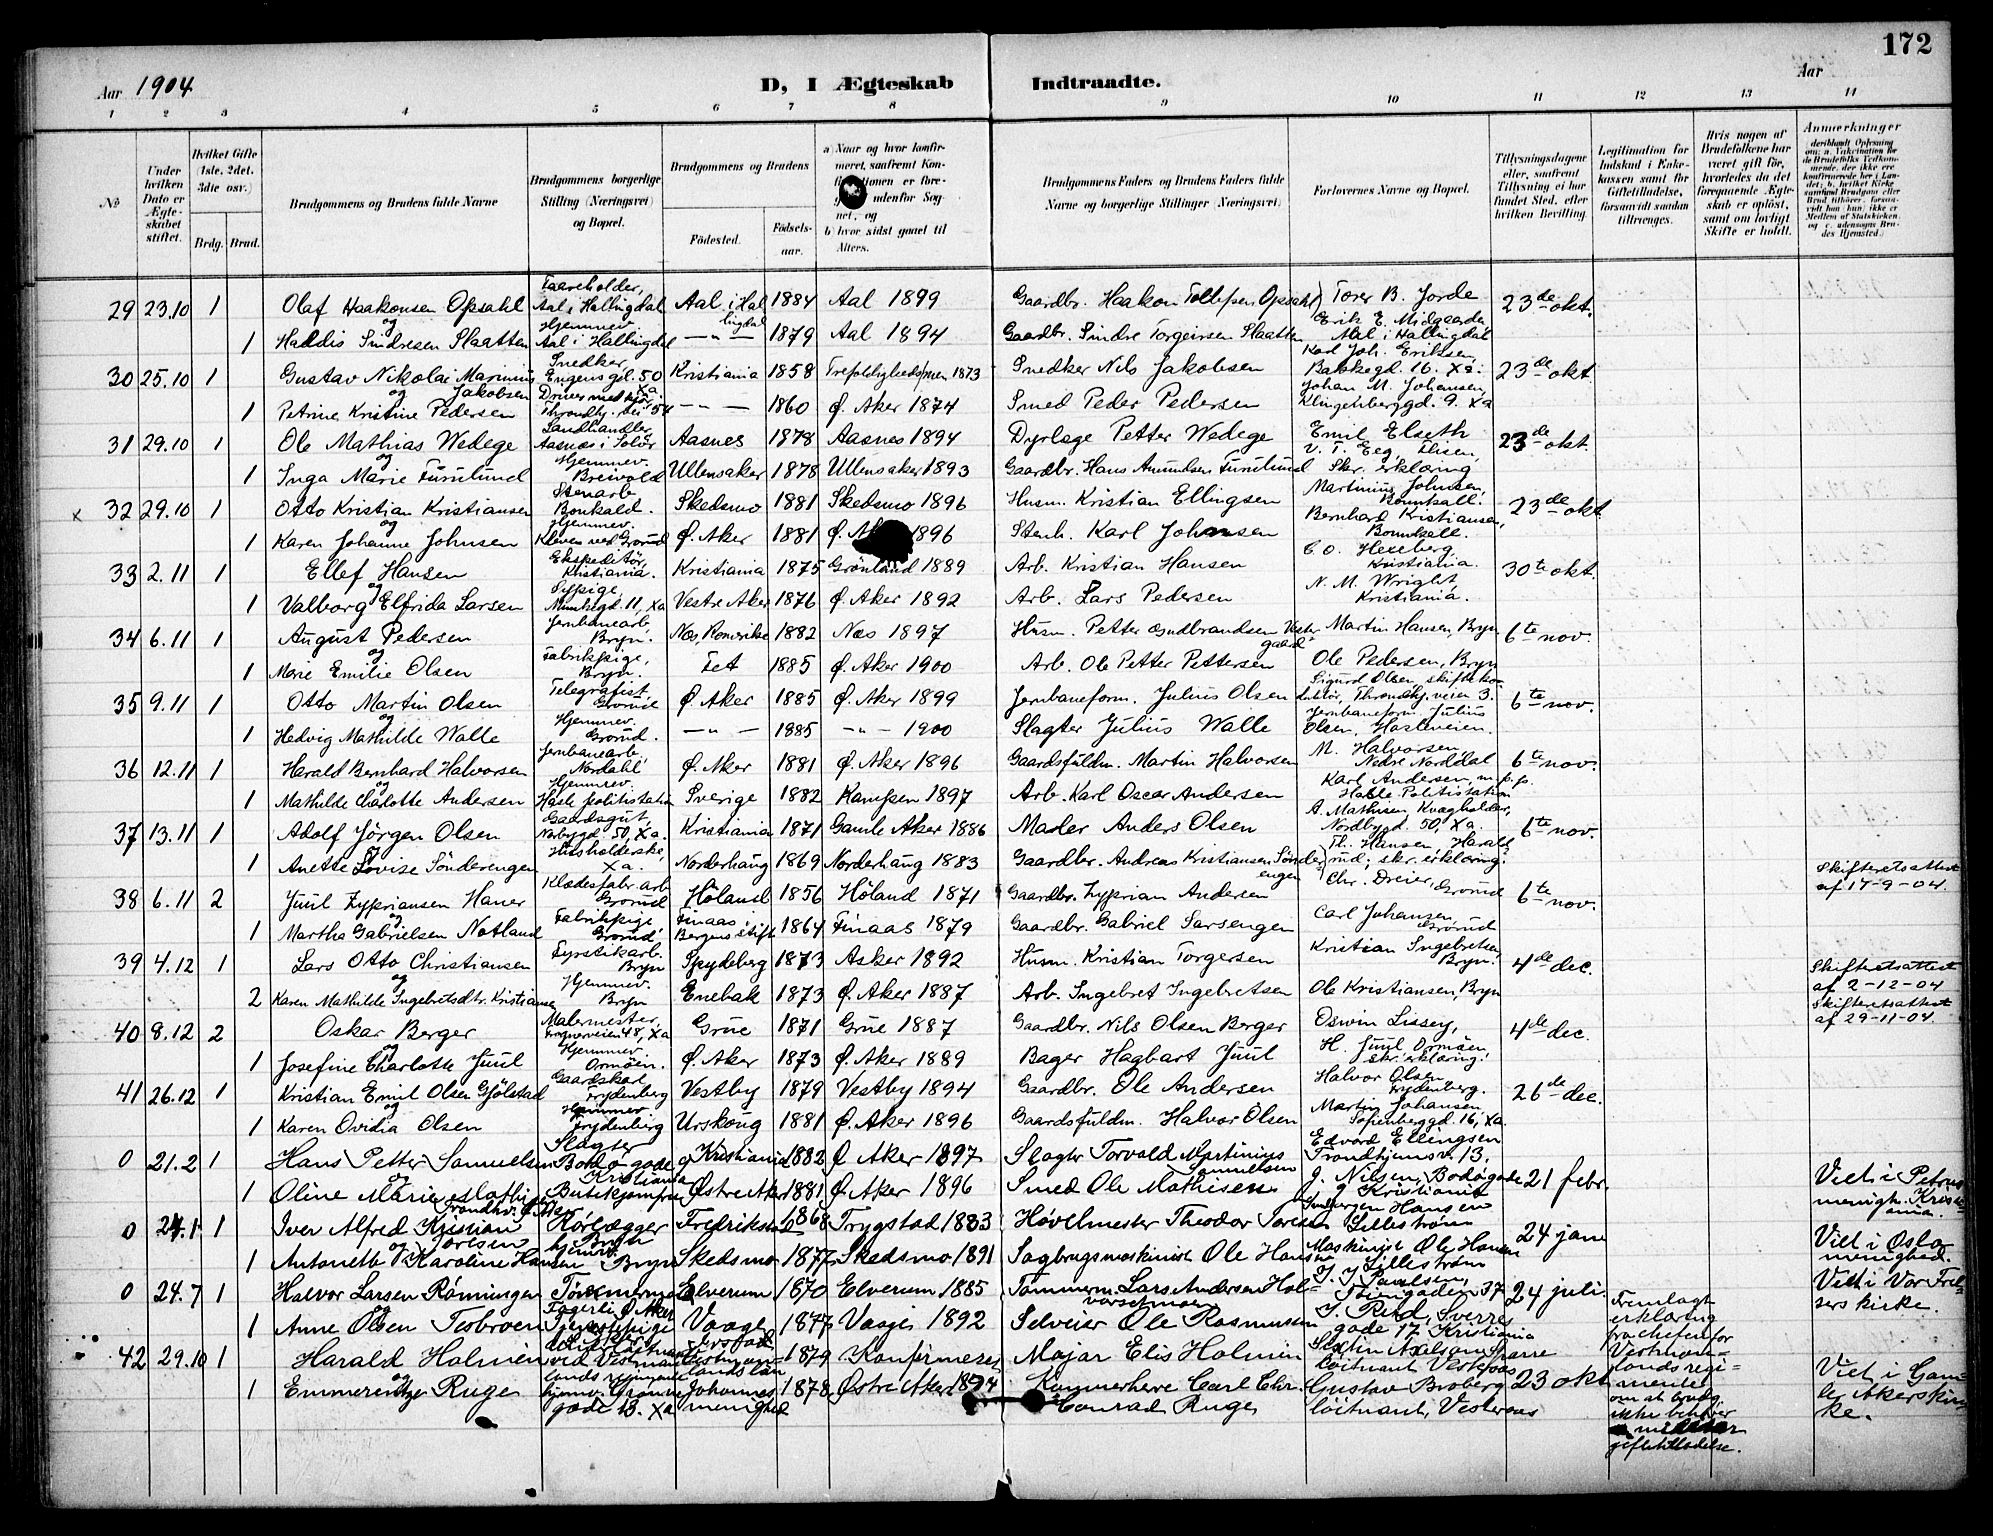 172
Aar 1904
D, I Ægteskab Indtraadte.
Aar
1 2 3 4 5 6 7 8 9 10 11 12 13 14
№
Under hvilken Dato er Ægteskabet stiftet.
Hvilket Gifte (1ste, 2det, 3die osv.)
Brdg. Brud.
Brudgommens og Brudens fulde Navne
Brudgommens borgerlige Stilling (Næringsvei) og Bopæl.
Brudgommens og Brudens
Fødested.
Fødselsaar.
a) Naar og hvor konfirmeret, saafremt
og
b) hvor sidst gaaet til Alters.
Brudgommens Faders og Brudens Faders fulde Navne og borgerlige Stillinger (Næringsvei)
Forlovernes Navne og Bopæl.
Tillysningsdagene eller, saafremt Tillysning ei har fundet Sted, efter hvilken Bevilling.
Legitimation for Indskud i Enkekassen samt for Giftetilladelse, forsaavidt saadan tiltrænges.
Hvis nogen af Brudefolkene har været gift før, hvorledes da det foregaaende Ægteskab er opløst, samt om lovligt Skifte er holdt.
Anmærkninger
29 23.10 1 Olaf Haakonsen Opsahl Aal i Hallingdal Aal i Hallingdal 1884 Aal 1899 Gaardbr. Haakon Opsahl Torer B. Jorde 23de okt.
og
1 Haddis Sindresen Slaatten Hjemmev. Aal i Hallingdal —"— 1879 Aal 1894 Gaardbr. Sindre Torgeirsen Slaatten Erik E. Midgaarden Aal i Hallingdal
30 25.10 1 Gustav Nikolai Marinius Jakobsen Snedker, Engensgd. 50 Kristiania 1858 Trefoldighedsmen 1873 Snedker Nils Jakobsen Karl Joh. Eriksen, Bakkegd. 16. Xa. 23de okt.
og
1 Petrine Kristine Pedersen Throndhj. vei 54 —"— 1860 Ø. Aker 1874 Smed Peder Pedersen Johan M. Johansen, Klingenberggd. 9. Xa
31 29.10 1 Ole Mathias Wedege Landhandler Aasnes i Solør Aasnes 1878 Aasnes 1894 Dyrlæge Petter Wedege Emil Elseth 23de okt.
og
1 Inga Marie Furulund Hjemmev. Breivold Ullensaker 1878 Ullensaker 1893 Gaardbr. Hans Amundsen Furulund V. T. Eeg, Flisen, Skr. erklæring
x 32 29.10 1 Otto Kristian Kristiansen Stenarb. Bonkald. Skedsmo 1881 Skedsmo 1896 Husm. Kristian Ellingsen Martinius Johnsen, Bonnkall. 23de okt.
og
1 Karen Johanne Johnsen Hjemmev. Kleven ved Grorud Ø. Aker 1881 Ø. 1896 Stenh. Karl Johansen Bernhard Kristiansen, Bonnkall.
33 2.11 1 Ellef Hansen Ekspeditør, Kristiania. Kristiania 1875 Grønland 1889 Arb. Kristian Hansen C. O. Hexeberg Kristiania. 30te okt.
og
1 Valborg Elfrida Larsen Sypige, Munkegd. 11, Xa Vestre Aker 1876 Ø. Aker 1892 Arb. Lars Pedersen N. M. Wright, Kristiania.
34 6.11 1 August Pedersen Jernbanearb. Bryn. Næs, Romerike 1882 Næs 1897 Husm. Petter Gudbrandsen Vestergaard Martin Hansen, Bryn 6te nov.
og
1 Marie Emilie Olsen Fabrikpige, Bryn. Fet 1885 Ø. Aker 1900 Arb. Ole Petter Pettersen Ole Pedersen, Bryn
35 9.11 1 Otto Martin Olsen Telegrafist, Grorud Ø. Aker 1885 Ø. Aker 1899 Jernbaneform. Julius Olsen Sigurd Olsen, skiftekonduktør, Throndhj. veien 3. 6te nov.
og
1 Hedvig Mathilde Walle Hjemmev. Grorud. —"— 1885 —"— 1900 Slagter Julius Walle Jernbaneform. Julius Olsen, Hasleveien.
36 12.11 1 Harald Bernhard Halvorsen Jernbanearb. Nordahl Ø. Aker 1881 Ø. Aker 1896 Gaardsfuldm. Martin Halvorsen M. Halvorsen, Nedre Norddal 6te nov.
og
1 Mathilde Charlotte Andersen Hjemmev. Hasle politistation Sverige 1882 Kampen 1897 Arb. Karl Oscar Andersen Karl Andersen, m.p.p. Hasle Politistation
37 13.11 1 Adolf Jörgen Olsen Gaardsgut, Norbygd. 50, Xa. Kristiania 1871 Gamle Aker 1886 Maler Anders Olsen A. Mathisen Kvægholder, Nordbygd. 50, Xa. 6te nov.
og
1 Anette Lovise Sönderengen Husholderske, Xa. Norderhaug 1869 Norderhaug 1883 Gaardbr. Andreas Kristiansen Sønderengen Th. Hansen, Haralrud, skr. erklæring.
38 6.11 2 Juul Zypriansen Haner Klædesfabr. arb. Grorud Höland 1856 Höland 1871 Gaardbr. Zyprian Andersen Chr. Dreier, Grorud 6te nov. Skifteretsattest af 17-9-04.
og
1 Martha Gabrielsen Notland Fabrikpige, Grorud. Finaas i Bergens stift 1864 Finaas 1879 Gaardbr. Gabriel Sarsengen Carl Johansen, Grorud
39 4.12 1 Lars Otto Christiansen Fyrstikarb. Bryn Spydeberg 1873 Asker 1892 Husm. Kristian Torgersen Kristian Ingebretsen Bryn. 4de dec.
og
2 Karen Mathilde Ingebretsdtr. Kristiansen Hjemmev. Bryn Enebak 1873 Ø. Aker 1887 Arb. Ingebret Ingebretsen Ole Kristiansen, Bryn Skifteretsattest af 2-12-04
40 8.12 2 Oskar Berger Malermester, Frognerveien 48, Xa Grue 1871 Grue 1887 Gaardbr. Nils Olsen Berger Oswin Lissey, 4de dec. Skifteretsattest af 29-11-04.
og
1 Josefine Charlotte Juul Hjemmev. Ormöen. Ø. Aker 1873 Ø. Aker 1889 Bager Hagbart Juul H. Juul Ormöen skr. erklæring.
41 26.12 1 Kristian Emil Olsen Gjölstad Gaardskarl Frydenberg Vestby 1879 Vestby 1894 Gaardbr. Ole Andersen Halvor Olsen Frydenberg. 26de dec.
og
1 Karen Ovidia Olsen Hjemmev. Frydenberg Urskoug 1881 Ø. Aker 1896 Gaardsfuldm. Halvor Olsen Martin Johansen, Sofienberggd. 16, Xa.
0 21.2 1 Hans Petter Samuelsen Slagter Bodøgade 9 Kristiania Kristiania 1882 Ø Aker 1897 Slagter Torvald Martinius Samuelsen Edvard Ellingsen Trondhjemsv. 13, 21 febr. Viet i Petrus menigh. Kristiania.
og
1 Oline Marie Mathisen Butikjomfru Østre Aker 1881 Ø. Aker 1896 Smed Ole Mathisen J. Nilsen, Bodøgade 9 Kristiania
0 24.1 1 Iver Alfred Kristian Toresen Rørlægger Bryn Fredrikstad 1868 Trygstad 1883 Høvelmester Theodor Toresen Ingbergen Hansen Lillestrøm 24 jan Viet i Oslo menighed.
og
1 Antonette Karoline Hansen hjemv. Bryn Skedsmo 1877 Skedsmo 1891 Sagbrugsmaskinist Ole Hansen Maskinist Ole Hansen Lillestrøm
0 24.7 1 Halvor Larsen Rønningen Fagerli Ø Aker Elverum 1870 Elverum 1885 Tømmerm. Lars Andersen Halvorsetmoen J. J. Paulsen, Tøiengaden 37 24 juli. Viet i Vor Frelsers kirke.
og
1 Anne Olsen Tesbroen Tjenestepige Vaage 1877 Vaage 1892 Selveier Ole Rasmussen J. Reid, Sverresgade 17 Kristiania
42 29.10 1 Harald Holmén løitnant ved Vestmanlands regiment 1879 Konfirmeret Majar Elis Holmin løitnant Vesteraas 23 okt Fremlagt erklæring fra chefen for Vestmanlands regimente om at brudg. ikke behøver giftetilladelse. Viet i Gamle Akers Kirke.
og
1 Emmerentze Ruge hjemv. gade 13. Xa Johannes menighed 1878 Østre Aker 1894 Kammerherre Carl Chr. Conrad Ruge Gustav Broberg løitnant, Vesteraas